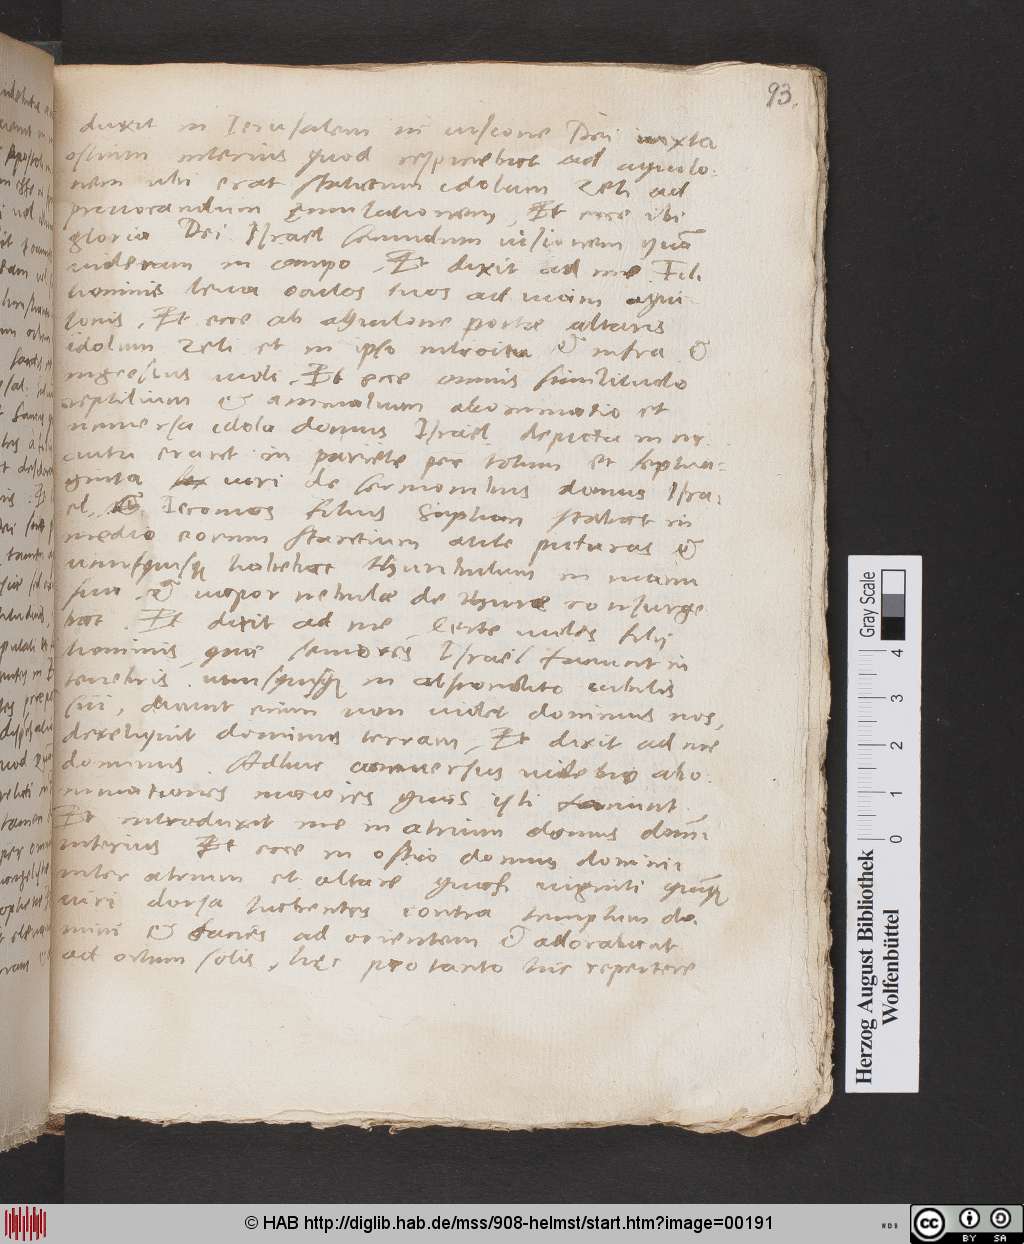 93.
duxit in Ierusalem in visione Dei iuxta
ostium interius quod respiciebat ad aquilo-
nem ubi erat statutum idolum zeli ad
provocandum emulationem, Et ecce ibi
gloria Dei Israel secundum visionem quā
videram in campo, Et dixit ad me Fili
hominis leva oculos tuos ad viam aqui-
lonis, Et ecce ab aquilone porte altaris
idolum zeli et in ipso introitu & infra &
ingressus vidi, Et ecce omnis similitudo
reptilium & animalium abominatio et
universa idola domus Israel depicta in cir
cuitu erant in pariete per totum et septua-
ginta viri de sermonibus domus Isra-
el, & Ieconias filius Saphan stabat in
medio eorum stantium ante picturas &
unusquisq habebat thuribulum in manu
sua & vapor nebulæ de thure consurge
bat. Et dixit ad me, Certe vides fili
hominis, que seniores Israel faciunt in
tenebris unusquisq in abscondito cubilis
sui, dicunt enim non videt dominus nos,
dereliquit dominus terram, Et dixit ad me
dominus Adhuc conversus videbis abo-
minationes maiores quas isti faciunt.
Et introduxit me in atrium domus domī
interius Et ecce in ostio domus domini
inter atrium et altare quasi viginti quīq
viri dorsa habentes contra templum do-
mini & facies ad orientem & adorabant
ad ortum solis, hęc pro tanto hic repetere
Herzog August Bibliothek
Wolfenbüttel
Gray Scale
0 1 2 3 4
© HAB http://diglib.hab.de/mss/908-helmst/start.htm?image=00191
WDB
cc BY SA